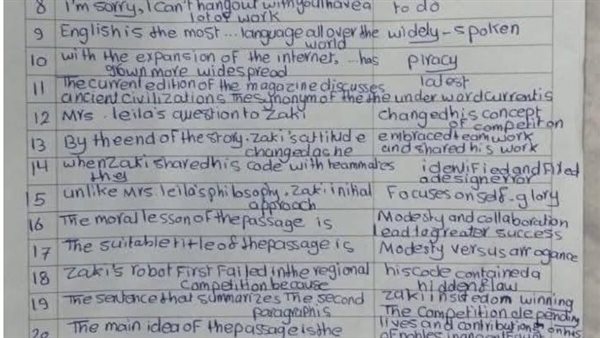 8 I'm sorry, I can't hangout with you I have a to do
lot of work
9 English is the most ... language all over the widely-spoken
world
10 with the expansion of the internet, ... has piracy
grown more widespread
11 The current edition of the magazine discusses latest
ancient civilizations The synonym of the the under word current is
12 Mrs. leila's question to Zaki changed his concept
of competition
13 By the end of the story. Zaki's attitude embraced team work
changed as he and shared his work
14 when Zaki shared his code with teammates identified and fixed
they a design error
15 unlike Mrs. leila's philosophy. Zaki initial Focuses on self-glory
approach
16 The moral lesson of the passage is Modesty and collaboration
lead to greater success
17 The suitable title of the passage is Modesty versus arrogance
18 Zaki's robot First Failed in the regional his code contained a
competition because hidden flaw
19 The sentence that summarizes The second Zaki insisted on winning
paragraph is The Competition depending
20 The main idea of the passage is the lives and contributions